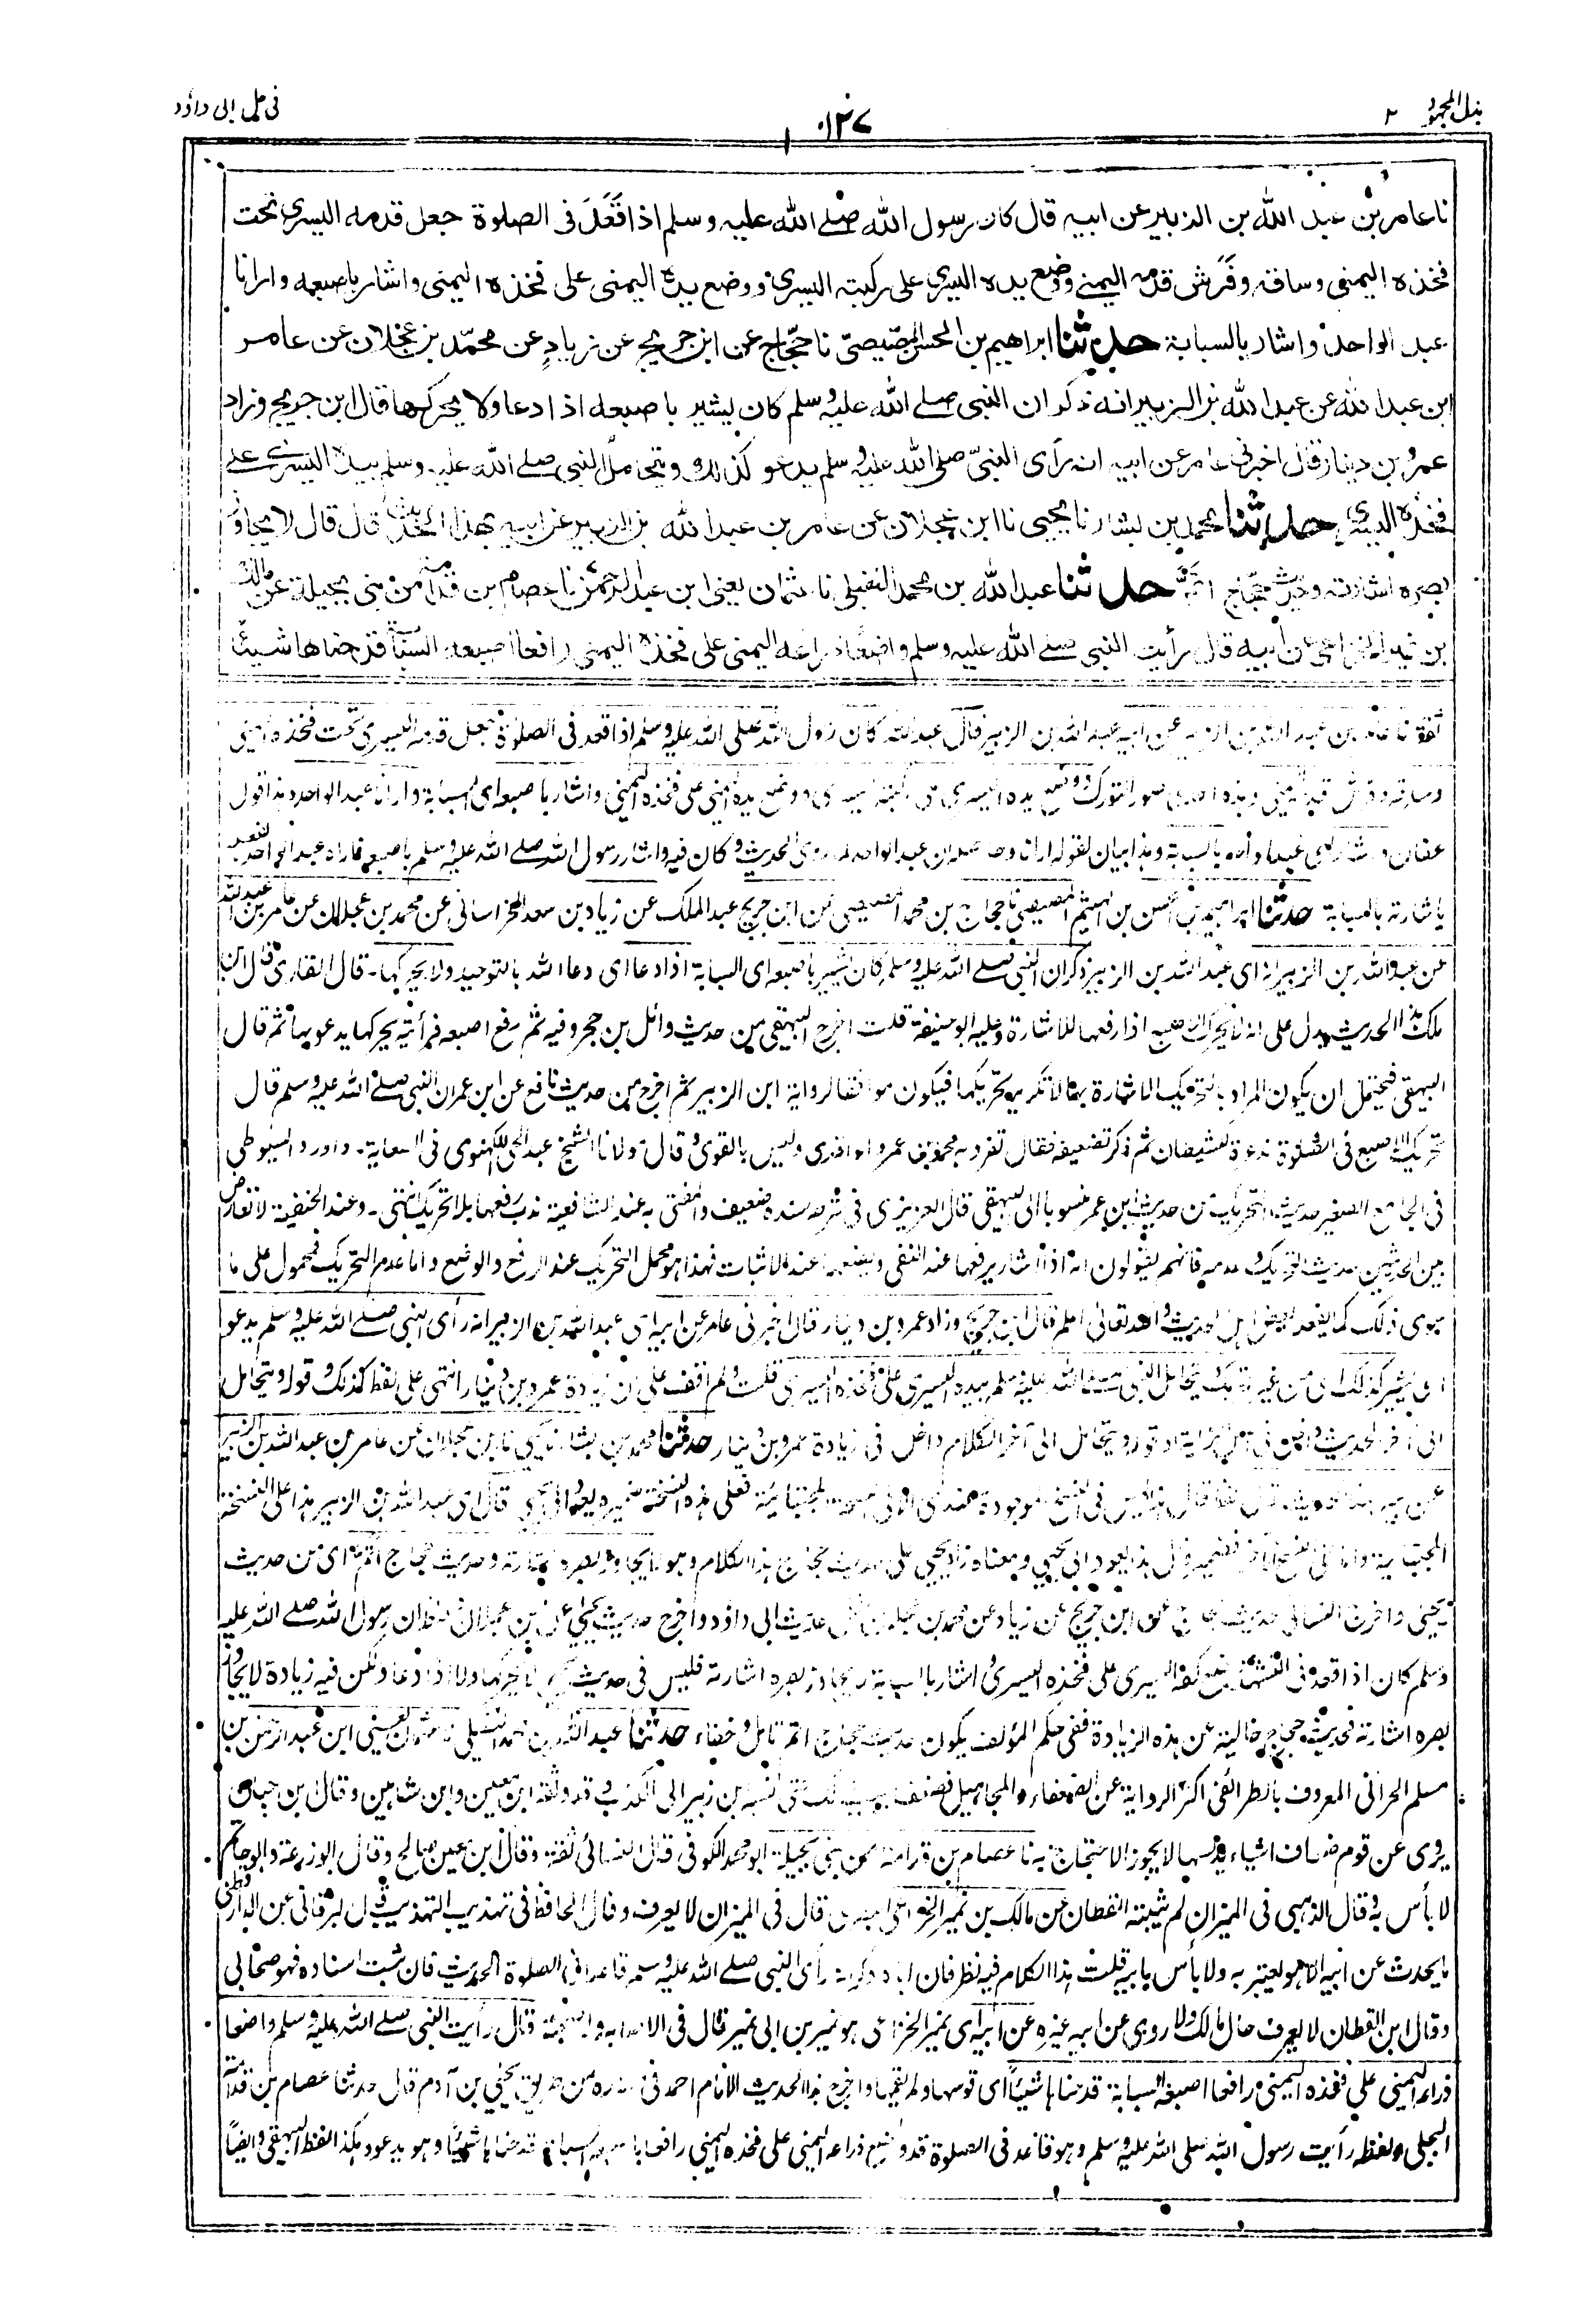 بذل المجهود ٢
١٢٧
فى حل ابى داؤد
نا عامر بن عبد الله بن الزبير عن ابيه قال كان رسول الله صلے الله عليه وسلم اذا قعد فى الصلوة جعل قدمه اليسرى تحت
فخذه اليمنى وساقه وفرش قدمه اليمنے ووضع يده اليسرى على ركبته اليسرى ووضع يده اليمنى على فخذه اليمنى واشار باصبعه وارانا
عبد الواحد واشار بالسبابة حدثنا ابراهيم بن الحسن المصيصى نا حجاج عن ابن جريج عن زياد عن محمد بن عجلان عن عامر
ابن عبد الله عن عبد الله بن الزبير انه ذكر ان النبى صلے الله عليه وسلم كان يشير باصبعه اذا دعا ولا يحركها قال ابن جريج وزاد
عمرو بن دينار قال اخبرنى عامر عن ابيه انه رأى النبى صلى الله عليه وسلم يدعو كذلك ويتحامل النبى صلے الله عليه وسلم بيده اليسرے علے
فخذه اليسرى حدثنا محمد بن بشار نا يحيى نا ابن عجلان عن عامر بن عبد الله بن الزبير عن ابيه بهذا الحديث قال قال لا يجاوز
بصره اشارته وحديث حجاج اتم حدثنا عبد الله بن محمد النفيلى نا عثمان يعنى ابن عبد الرحمن نا عصام بن قدامة من بنى بجيلة عن مالك
بن نمير الخزاعى عن ابيه قال رأيت النبى صلے الله عليه وسلم واضعا ذراعه اليمنى على فخذه اليمنى رافعا اصبعه السبابة قد حناها شيئا
عبد الله بن الزبير عن ابيه عبد الله بن الزبير قال عبد الله كان رسول الله صلى الله عليه وسلم اذا قعد فى الصلوة جعل قدمه اليسرى تحت فخذه اليمنى
وساقه يده اليمنى على فخذه اليمنى واشار باصبعه اى السبابة وارانا عبد الواحد هذا قول
عفان بالسبابة وهذا بيان لقوله ارانا الحديث وكان فيه واشار رسول الله صلے الله عليه وسلم باصبعه فاراه عبد الواحد
باشارته بالسبابة حدثنا ابراهيم بن الحسن بن الهيثم المصيصى نا حجاج بن محمد المصيصى عن ابن جريج عبد الملك عن زياد بن سعد الخراسانى عن محمد بن عجلان عن عامر بن عبد الله
عن عبد الله بن الزبير انه اى عبد الله بن الزبير ذكر ان النبى صلے الله عليه وسلم كان يشير باصبعه اى السبابة اذا دعا اى دعا الله بالتوحيد ولا يحركها ـ قال القارى قال ابن
ملك هذا الحديث يدل على انه لا يحرك الاصبع اذا رفعها للاشارة وعليه ابو حنيفة قلت اخرج البيهقى من حديث وائل بن حجر وفيه ثم رفع اصبعه فرأيته يحركها يدعو بها ثم قال
البيهقى فيحتمل ان يكون المراد بالتحريك الاشارة بها لا تكرير تحريكها فيكون موافقا لرواية ابن الزبير ثم اخرج من حديث نافع عن ابن عمر ان النبى صلے الله عليه وسلم قال
تحريك الاصبع فى الصلوة مذعرة للشيطان ثم ذكر تضعيفه فقال تفرد به محمد بن عمر والواقدى وليس بالقوى وقال مولانا الشيخ عبد الحى اللكهنوى فى السعاية ـ واورد السيوطى
فى الجامع الصغير حديث التحريك من حديث ابن عمر منسوبا الى البيهقى قال العزيزى فى شرحه سنده ضعيف والمفتى به عند الشافعية ندب رفعها بلا تحريك انتهى ـ وعند الحنفية لا تعارض
بين الحديثين حديث التحريك وعدمه فانهم يقولون انه اذا اشار يرفعها عند النفى ويضعها عند الاثبات فهذا هو محمل التحريك عند الرفع والوضع واما عدم التحريك فمحمول على ما
سوى ذلك كما يفعله بعض اهل الحديث والله تعالى اعلم قال ابن جريج وزاد عمرو بن دينار قال اخبرنى عامر عن ابيه اى عبد الله بن الزبير انه رأى النبى صلے الله عليه وسلم يدعو
اى يشير كذلك اى من غير تحريك ويتحامل النبى صلے الله عليه وسلم بيده اليسرى على فخذه اليسرى قلت ولم اقف على ان زيادة عمرو بن دينار انتهى على لفظ كذلك وقوله ويتحامل
الى آخر الحديث ويتحامل الى آخر الكلام داخل فى زيادة عمرو بن دينار حدثنا محمد بن بشار نا يحيى نا ابن عجلان عن عامر بن عبد الله بن الزبير
عن ابيه بهذا الحديث قال فى النسخ الموجودة عندى المجتبائية فعلى هذه النسخة ضميره يعود الى يحيى قال اى عبد الله بن الزبير هذا على النسخة
المجتبائية قال هذا يعود الى يحيى ومعناه زاد يحيى على حديث حجاج هذا الكلام وهو لا يجاوز بصره اشارته وحديث حجاج اتم اى من حديث
يحيى واخرج النسائى حديث حجاج عن ابن جريج عن زياد عن محمد بن عجلان حديث ابى داؤد واخرج حديث يحيى عن ابن عجلان ان رسول الله صلے الله عليه
وسلم كان اذا قعد فى التشهد وضع كفه اليسرى على فخذه اليسرى واشار بالسبابة لا يجاوز بصره اشارته فليس فى حديث يحيى لا يحركها ولا اذا دعا ولكن فيه زيادة لا يجاوز
بصره اشارته فحديث حجاج خالية عن هذه الزيادة ففى حكم المؤلف يكون حديث حجاج اتم تأمل وخفاء حدثنا عبد الله بن محمد النفيلى نا عثمان يعنى ابن عبد الرحمن بن
مسلم الحرانى المعروف بالطرائفى اكثر الرواية عن الضعفاء والمجاهيل فضعف بسبب ذلك حتى نسبه ابن نمير الى الكذب وقد وثقه ابن معين وابن شاهين وقال ابن حبان
يروى عن قوم ضعاف اشياء يدلسها لا يجوز الاحتجاج به نا عصام بن قدامة من بنى بجيلة ابو محمد الكوفى قال النسائى ثقة وقال ابن معين صالح وقال ابو زرعة وابو حاتم
لا بأس به وقال الذهبى فى الميزان لم يثبته القطان عن مالك بن نمير الخزاعى البصرى قال فى الميزان لا يعرف وقال الحافظ فى تهذيب التهذيب قال البرقانى عن الدارقطنى
ما يحدث عن ابيه الا هو يعتبر به ولا بأس بابيه قلت هذا الكلام فيه نظر فان اباه ذكر انه رأى النبى صلے الله عليه وسلم قاعدا فى الصلوة الحديث فان ثبت اسناده فهو صحابى
وقال ابن القطان لا يعرف حال مالك ولا روى عن ابيه غيره عن ابيه اى نمير الخزاعى هو نمير بن ابى نمير قال فى الاصابة قال رأيت النبى صلے الله عليه وسلم واضعا
ذراعه اليمنى على فخذه اليمنى رافعا اصبعه السبابة قد حناها شيئا اى قوسها ولم يقمها واخرج هذا الحديث الامام احمد فى مسنده من طريق يحيى بن آدم قال حدثنا عصام بن قدامة
البجلى ولفظه رأيت رسول الله صلى الله عليه وسلم وهو قاعد فى الصلوة قد وضع ذراعه اليمنى على فخذه اليمنى رافعا باصبعه السبابة قد حناها شيئا وهو يدعو وهكذا لفظ البيهقى وايضا